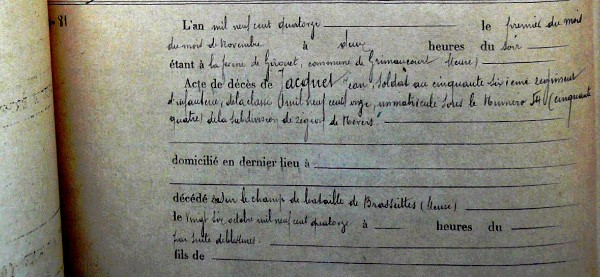 81
L'an mil neuf cent quatorze le premier du mois
du mois de Novembre à deux heures du soir
étant à la ferme de Girouet, commune de Grimaucourt (Meuse)
Acte de décès de Jacquet Jean, soldat au cinquante sixième régiment
d'infanterie, de la classe mil neuf cent onze, immatriculé sous le Numéro 54 (cinquante
quatre) de la subdivision de région de Nevers.
domicilié en dernier lieu à
décédé sur le champ de bataille de (Meuse)
le vingt six octobre mil neuf cent quatorze à heures du
par suite de blessures.
fils de